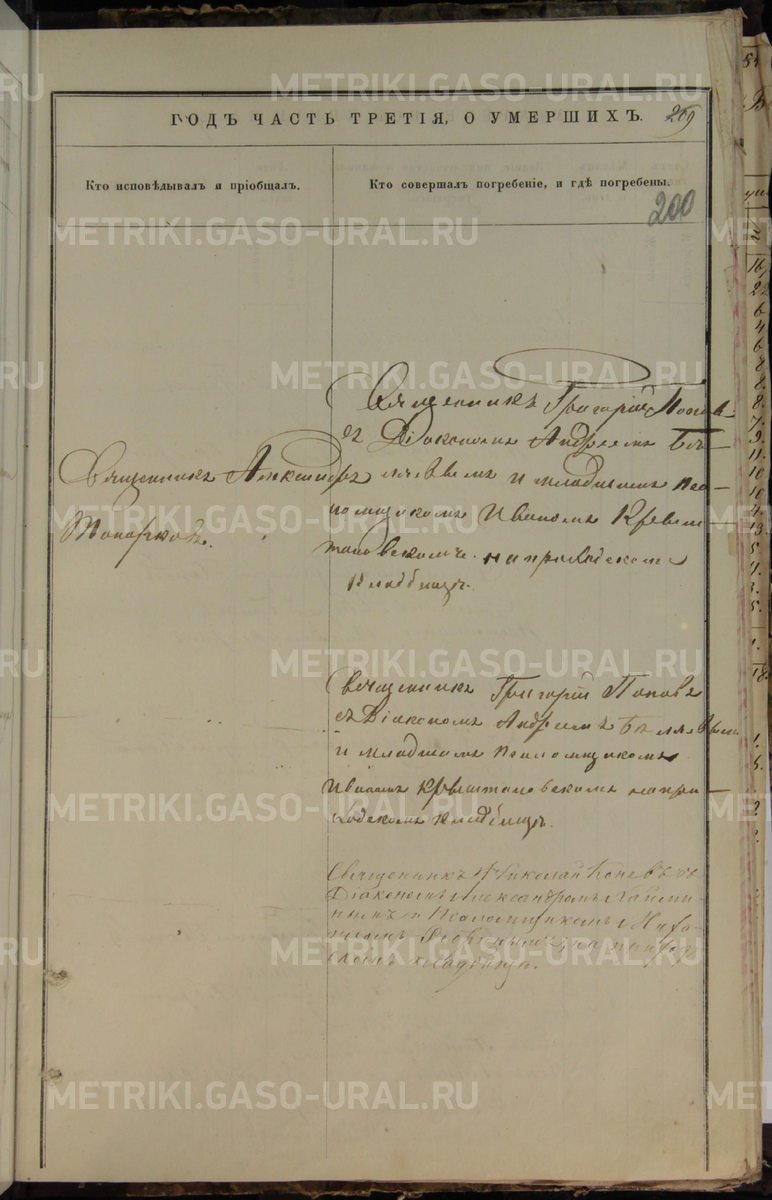 ГОДЪ ЧАСТЬ ТРЕТІЯ, О УМЕРШИХЪ.
Кто исповѣдывалъ и пріобщалъ.
Кто совершалъ погребеніе, и гдѣ погребены.
200
Священникъ Александръ
Топорковъ.
Священникъ Григорій Попов
съ Діакономъ Андреемъ Бѣ-
ляевымъ и младшимъ пса-
ломщикомъ Иваномъ Кревш
тановскимъ на приходскомъ
кладбищѣ.
Священникъ Григорій Поповъ
съ Діакономъ Андреемъ Бѣляевым
и младшимъ псаломщикомъ
Иваномъ на при-
ходскомъ кладбищѣ.
Священникъ Николай съ
Діакономъ Александромъ
и Псаломщикомъ
на приход
скомъ кладбищѣ.
METRIKI.GASO-URAL.RU